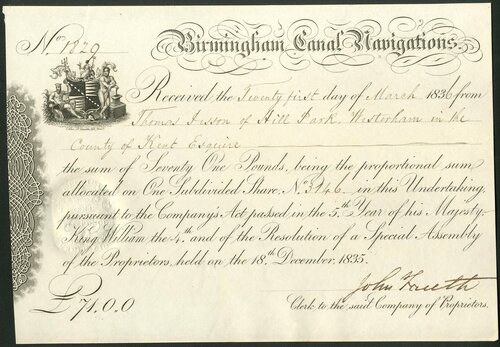 No. 1829
Birmingham Canal Navigations.
Received the Twenty first day of March 1836 from
Thomas Jesson of Hill Park, Westerham in the
County of Kent Esquire
the sum of Seventy One Pounds, being the proportional sum
allocated on One Subdivided Share, No. 3146 in this Undertaking,
pursuant to the Company's Act passed in the 5th Year of his Majesty
King William the 4th and of the Resolution of a Special Assembly
of the Proprietors, held on the 18th December, 1835.
£71.0.0
John
Clerk to the said Company of Proprietors.